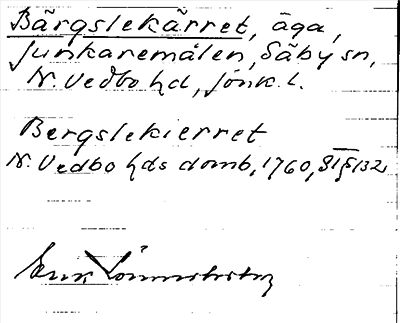 Bärgslekärret, äga,
Junkaremålen, Säby sn,
N. Vedbo hd, Jönk. l.
Bergslekierret
N. Vedbo hds domb, 1760, § 132
Erik